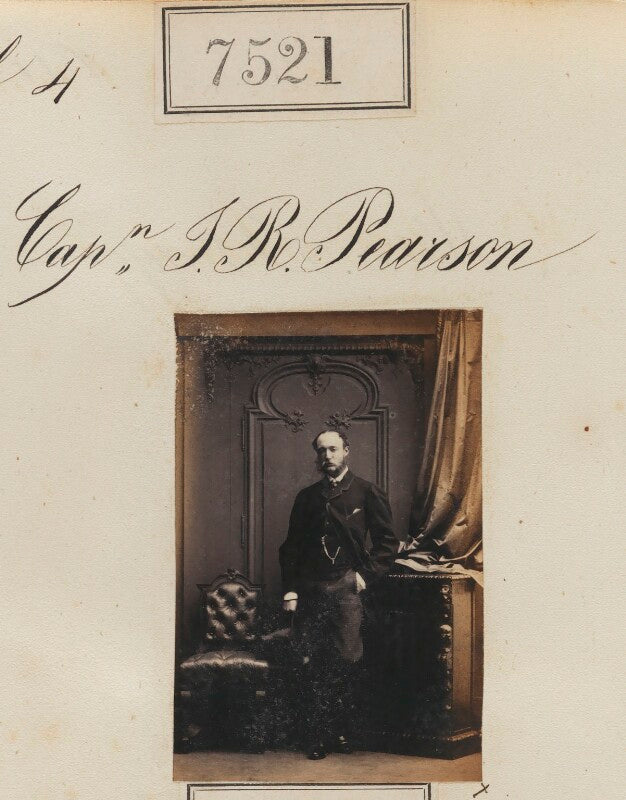 4
7521
Capⁿ J. R. Pearson
x